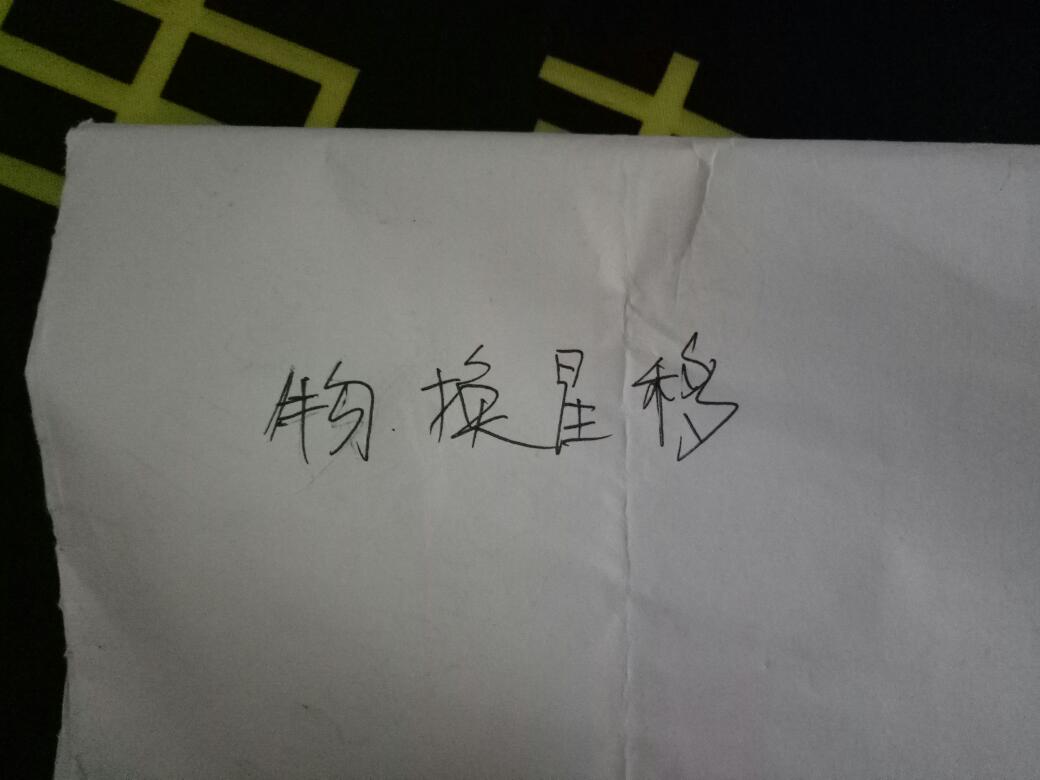 物换星移